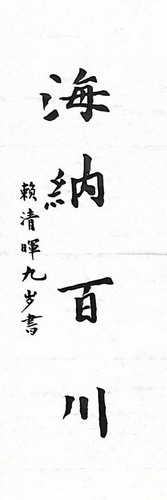 海納百川
賴清暉九岁書